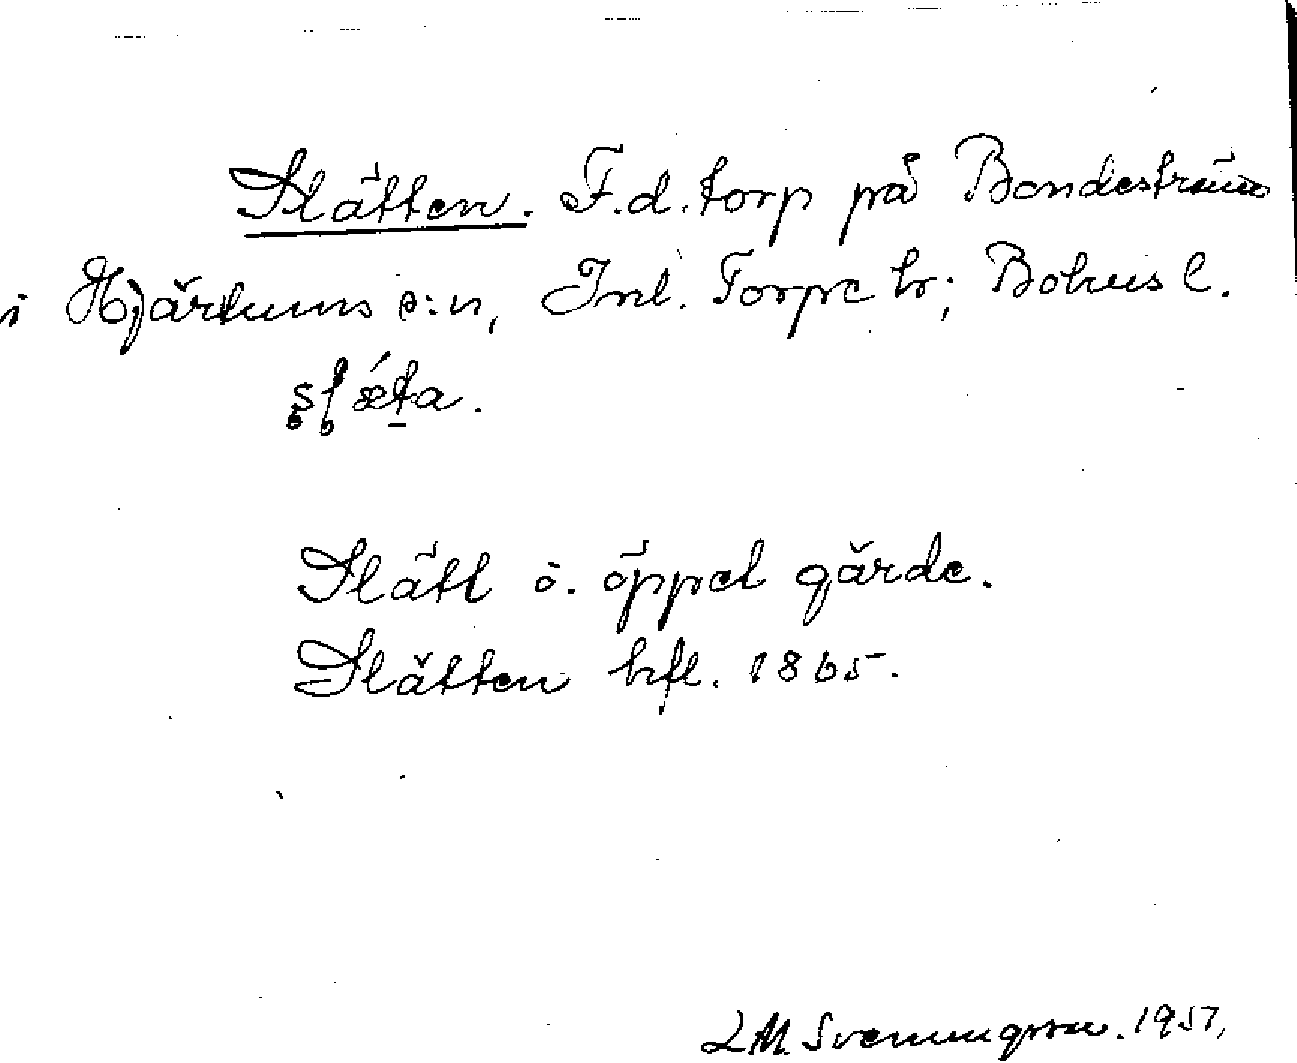 Slätten. F.d. torp på Bondeström
i Hjärtums s:n, Inl. Torpe hr; Bohusl.
slǽta.
Slätt o. öppet gärde.
Slätten hfl. 1865.
LM. Svenungsson. 1957.